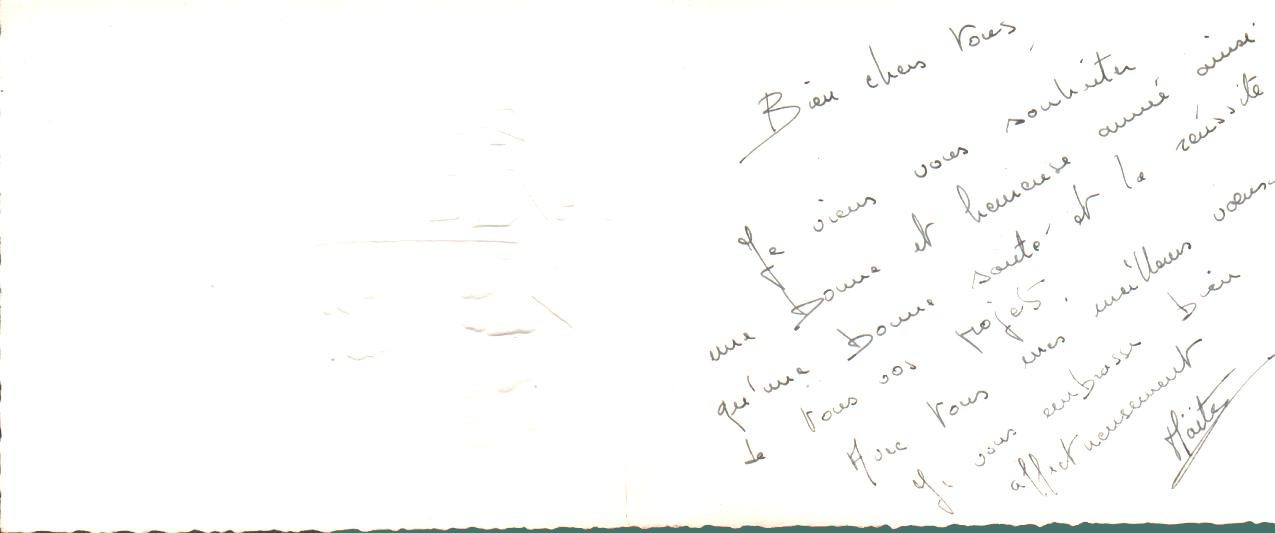 Bien chers Tous,
Je viens vous souhaiter
une Bonne et heureuse année ainsi
qu'une Bonne santé et la réussite
de Tous vos projets.
Avec Tous mes meilleurs voeux.
Je vous embrasse bien
affectueusement
Maïté